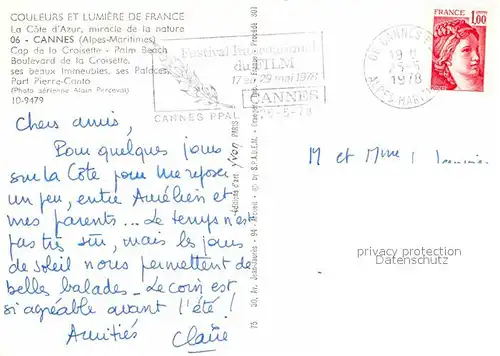 COULEURS ET LUMIÈRE DE FRANCE
La Côte d'Azur, miracle de la nature
06 - CANNES (Alpes-Maritimes)
Cap de la Croisette - Palm Beach
Boulevard de la Croisette,
ses beaux Immeubles, ses Palaces,
Port Pierre-Canto
(Photo aérienne Alain Perceval)
10-9479
Festival International
du FILM
17 au 29 mai 1978
CANNES
CANNES PPAL
25-5-78
CANNES
18 H
25-5
1978
ALPES-MARIT
1,00
FRANCE
Chers amis,
Pour quelques jours
sur la Côte pour me reposer
un peu, entre Aurélien et
mes parents... Le temps n'est
pas très sûr, mais les jours
de soleil nous permettent de
belles balades - Le coin est
si agréable avant l'été !
Amitiés Claire
éditions d'art yvon PARIS
M et Mme
privacy protection
Datenschutz